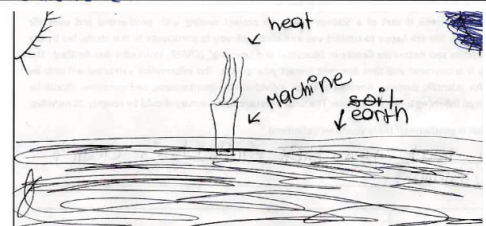 heat
Machine
soil
earth